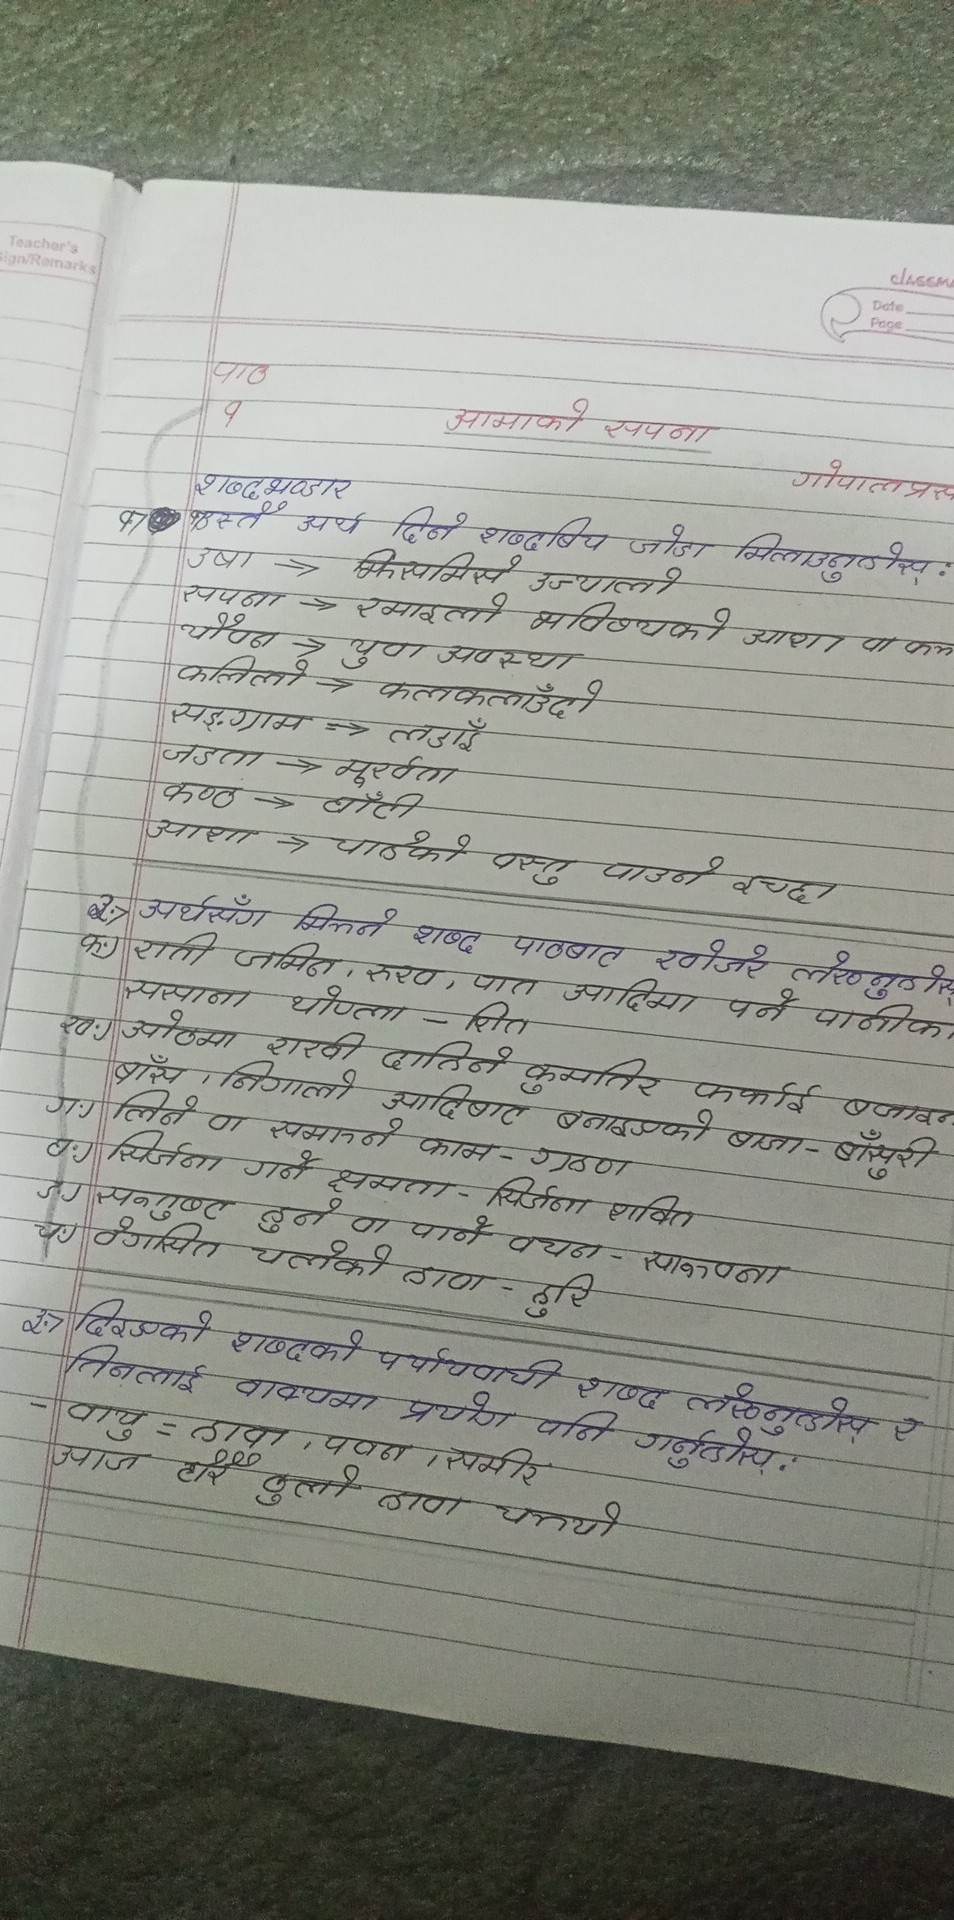 Teacher's
Sign/Remarks
classm
Date
Page
पाठ
१
आमाको सपना
गोपाल प्रस
शब्दभण्डार
१) उस्तै अर्थ दिने शब्दबिच जोडा मिलाउनुहोस् :
उषा → झिसमिसे उज्यालो
सपना → रमाइलो भविष्यको आशा वा कल
यौवन → युवा अवस्था
कलिलो → कलकलाउँदो
सङ्ग्राम → लडाइँ
जडता → मूर्खता
कण्ठ → घाँटी
आशा → चाहेको वस्तु पाउने इच्छा
२.→ अर्थसँग मिल्ने शब्द पाठबाट खोजेर लेख्नुहोस्
क.) राती जमिन, रुख, पात आदिमा पर्ने पानीका
ससाना थोप्ला - शित
ख.) ओठमा राखी दाहिने कुमतिर फर्काई बजाइन
बाँस, निगालो आदिबाट बनाइएको बाजा - बाँसुरी
ग.) लिने वा समात्ने काम - ग्रहण
घ.) सिर्जना गर्ने क्षमता - सिर्जना शक्ति
ङ.) सन्तुष्ट हुने वा पार्ने वचन - सान्त्वना
च.) वेगसित चलेको हावा - हुरि
३.→ दिइएको शब्दको पर्यायवाची शब्द लेख्नुहोस् र
तिनलाई वाक्यमा प्रयोग पनि गर्नुहोस् :
- वायु = हावा, पवन, समीर
आज धेरै ठुलो हावा चल्यो